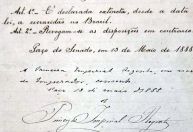 Art. 1º É declarada extincta, desde a data
lei, a escravidão no Brasil.
Art. 2º Revogam-se as disposições em contrario
Paço do Senado, em 13 de Maio de 1888
A Princeza Imperial Regente, em nome
do Imperador, consente
Paço 13 de maio de 1888
Princeza Imperial Regente